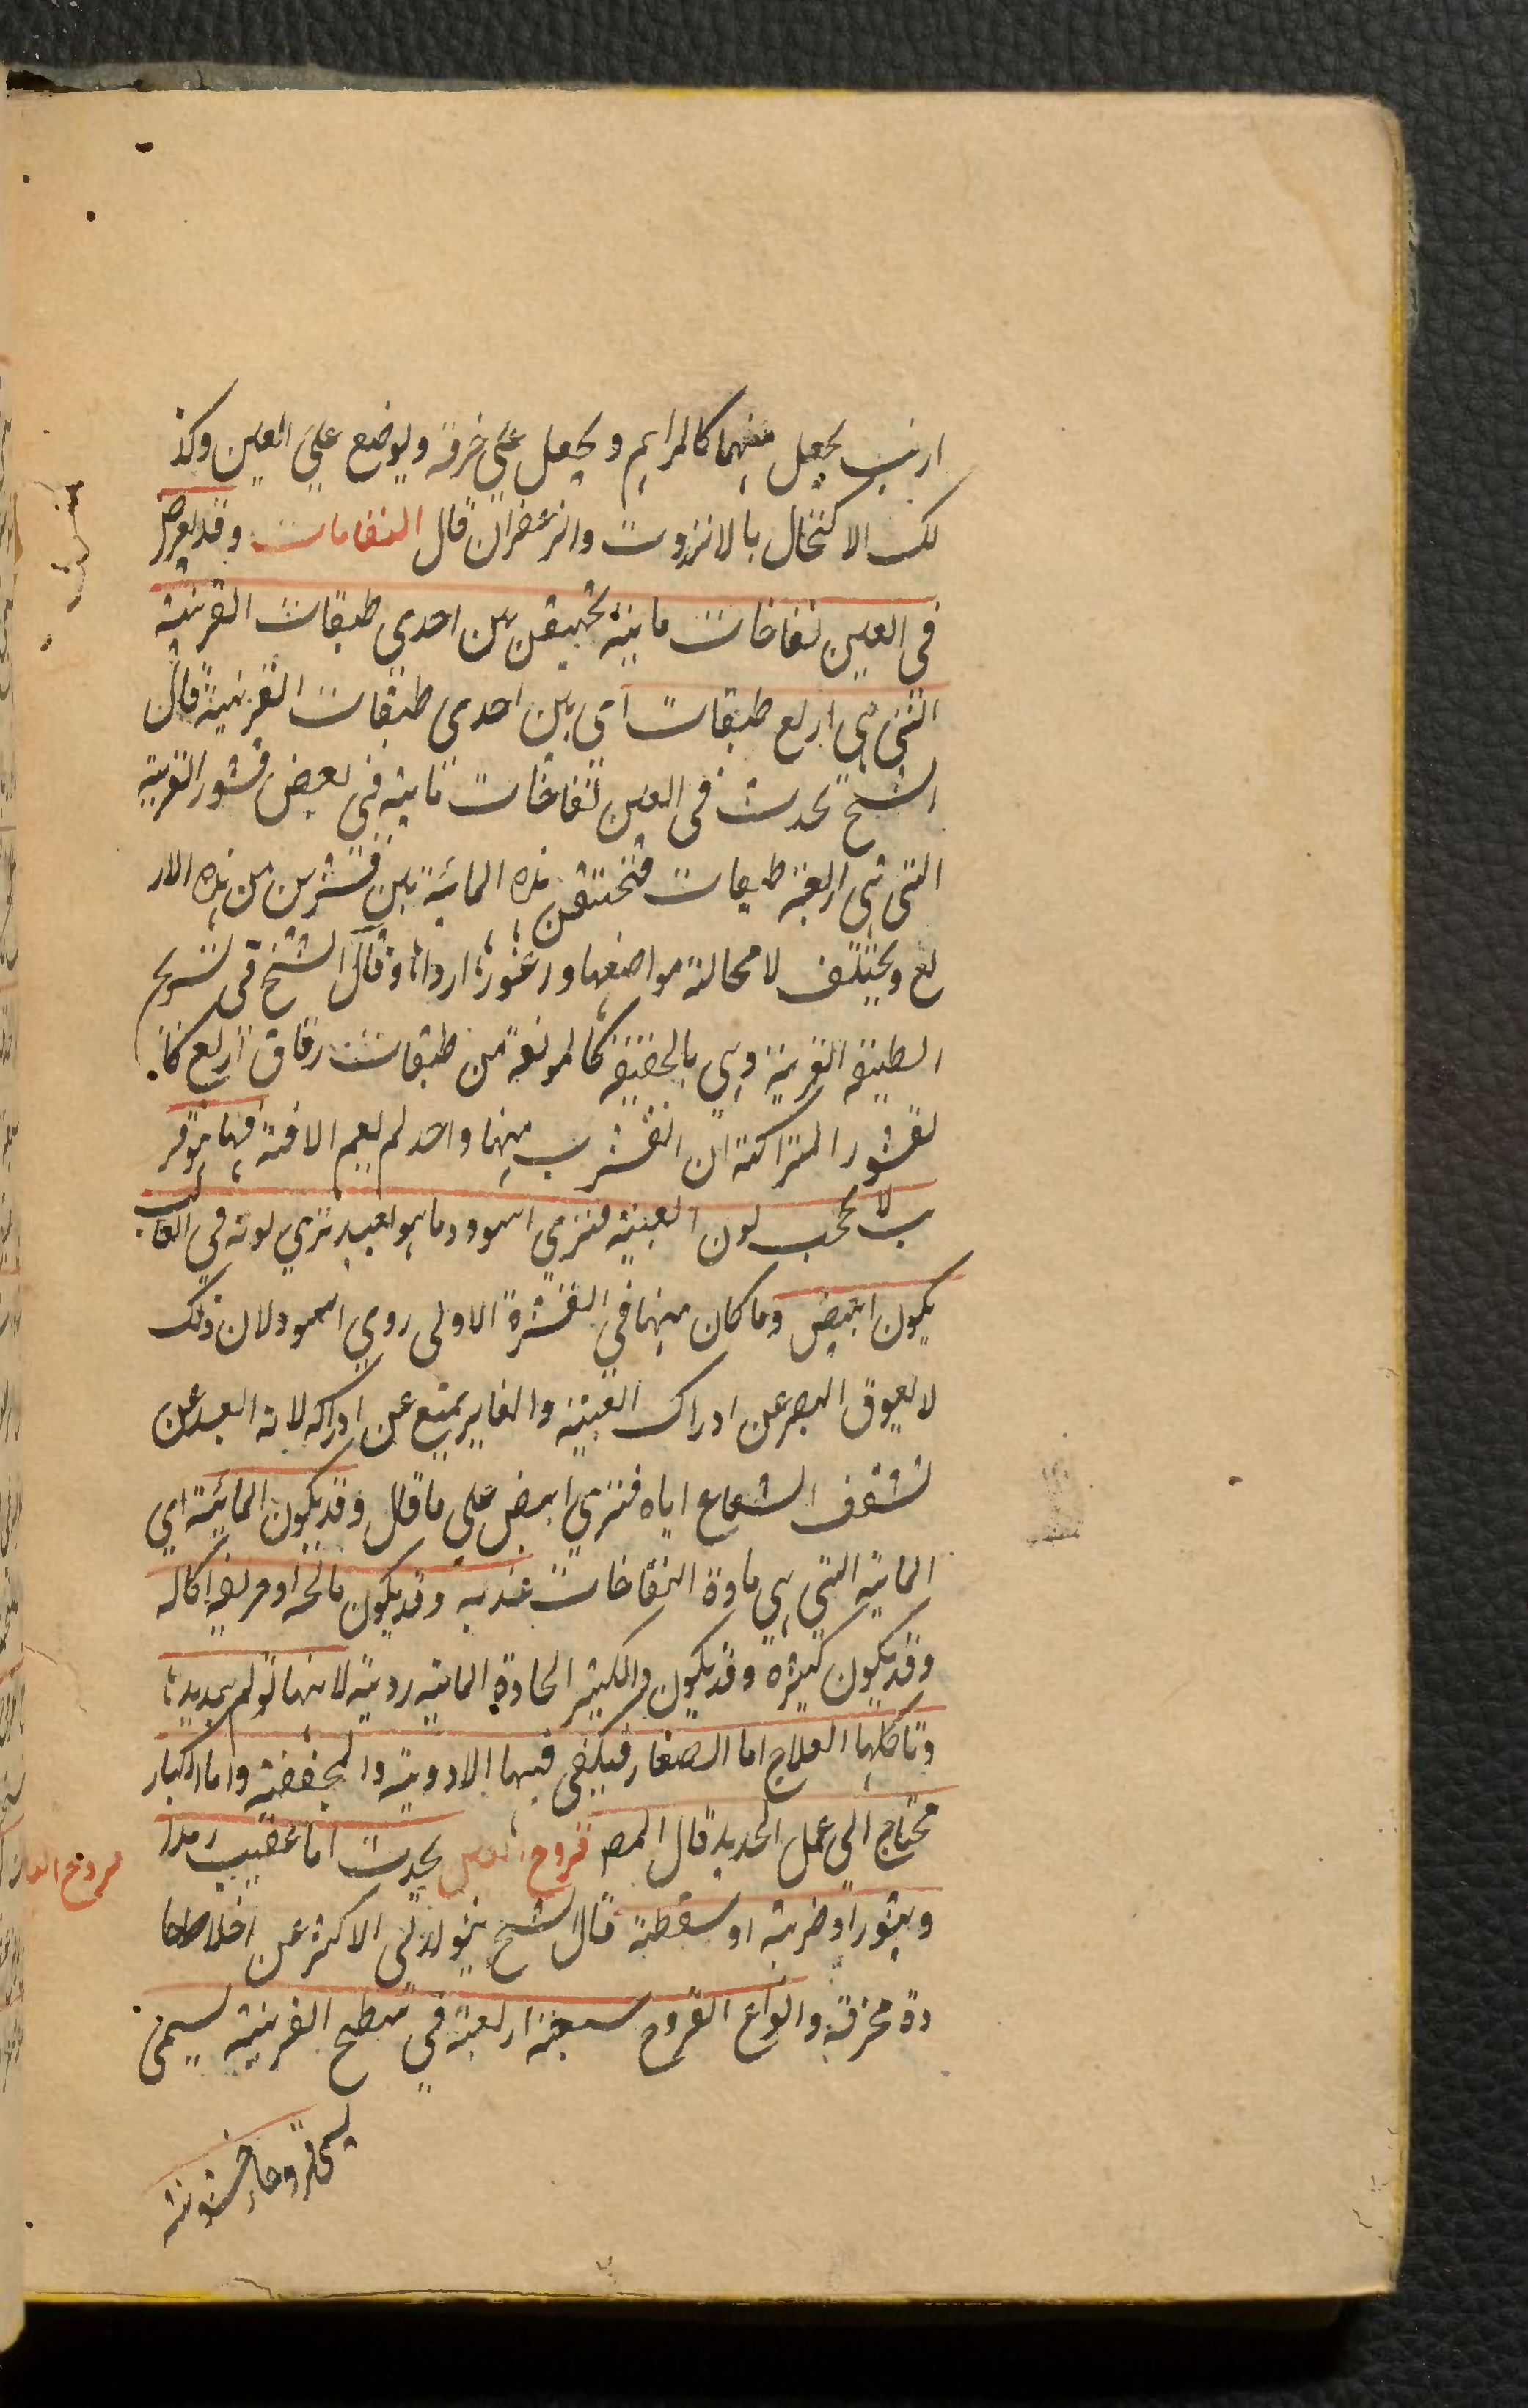 ارنب يجعل منهما كالمراهم ويجعل على خرقة ويوضع على العين وكذ
لك الاكتحال بالانزروت والزعفران قال النفاخات وقد يعرض
فى العين نفاخات مائية تحتقن بين احدى طبقات القرنية
التى هى اربع طبقات اى بين احدى طبقات القرنية قال
الشيخ تحدث فى العين نفاخات مائية فى بعض قشور القرنية
التى هى اربعة طبقات فتحتقن هذه المائية بين قشرين من هذه الار
بع ويختلف لا محالة مواضعها واغورها ارداها وقال الشيخ فى تشريح
الطبقة القرنية وهى بالحقيقة كالمولفة من طبقات رقاق اربع كا
لقشور المتراكبة ان انقشرت منها واحد لم يعم الافة فيها
لا تحجب لون العنبية فترى اسود وما هو ابعد ترى لونه فى الغالب
يكون ابيض وما كان منها فى القشرة الاولى روى اسود لان ذلك
لا يعوق البصر عن ادراك العنبية والغاير يمنع عن ادراكه لانه ابعد عن
تشفف الشعاع اياه فترى ابيض على ما قال وقد يكون المائية اى
المائية التى هى مادة النفاخات عذبه وقد يكون مالحه او حريفه اكاله
وقد يكون كثيره وقد يكون والكثير الحادة المائيه رديه لانها تولم بتمديدها
وتاكلها العلاج اما الصغار فيكفى فيها الادوية والمجففة واما الكبار
محتاج الى عمل الحديد قال المص قروح العين يحدث اما عقيب رمد ا
وبثور او ضربة او سقطة قال الشيخ يتولد فى الاكثر عن اخلاط حا
دة محرقة وانواع القروح سبعة اربعة فى سطح القرنية يسمى
يسمى قروحا خشونة
قروح العين